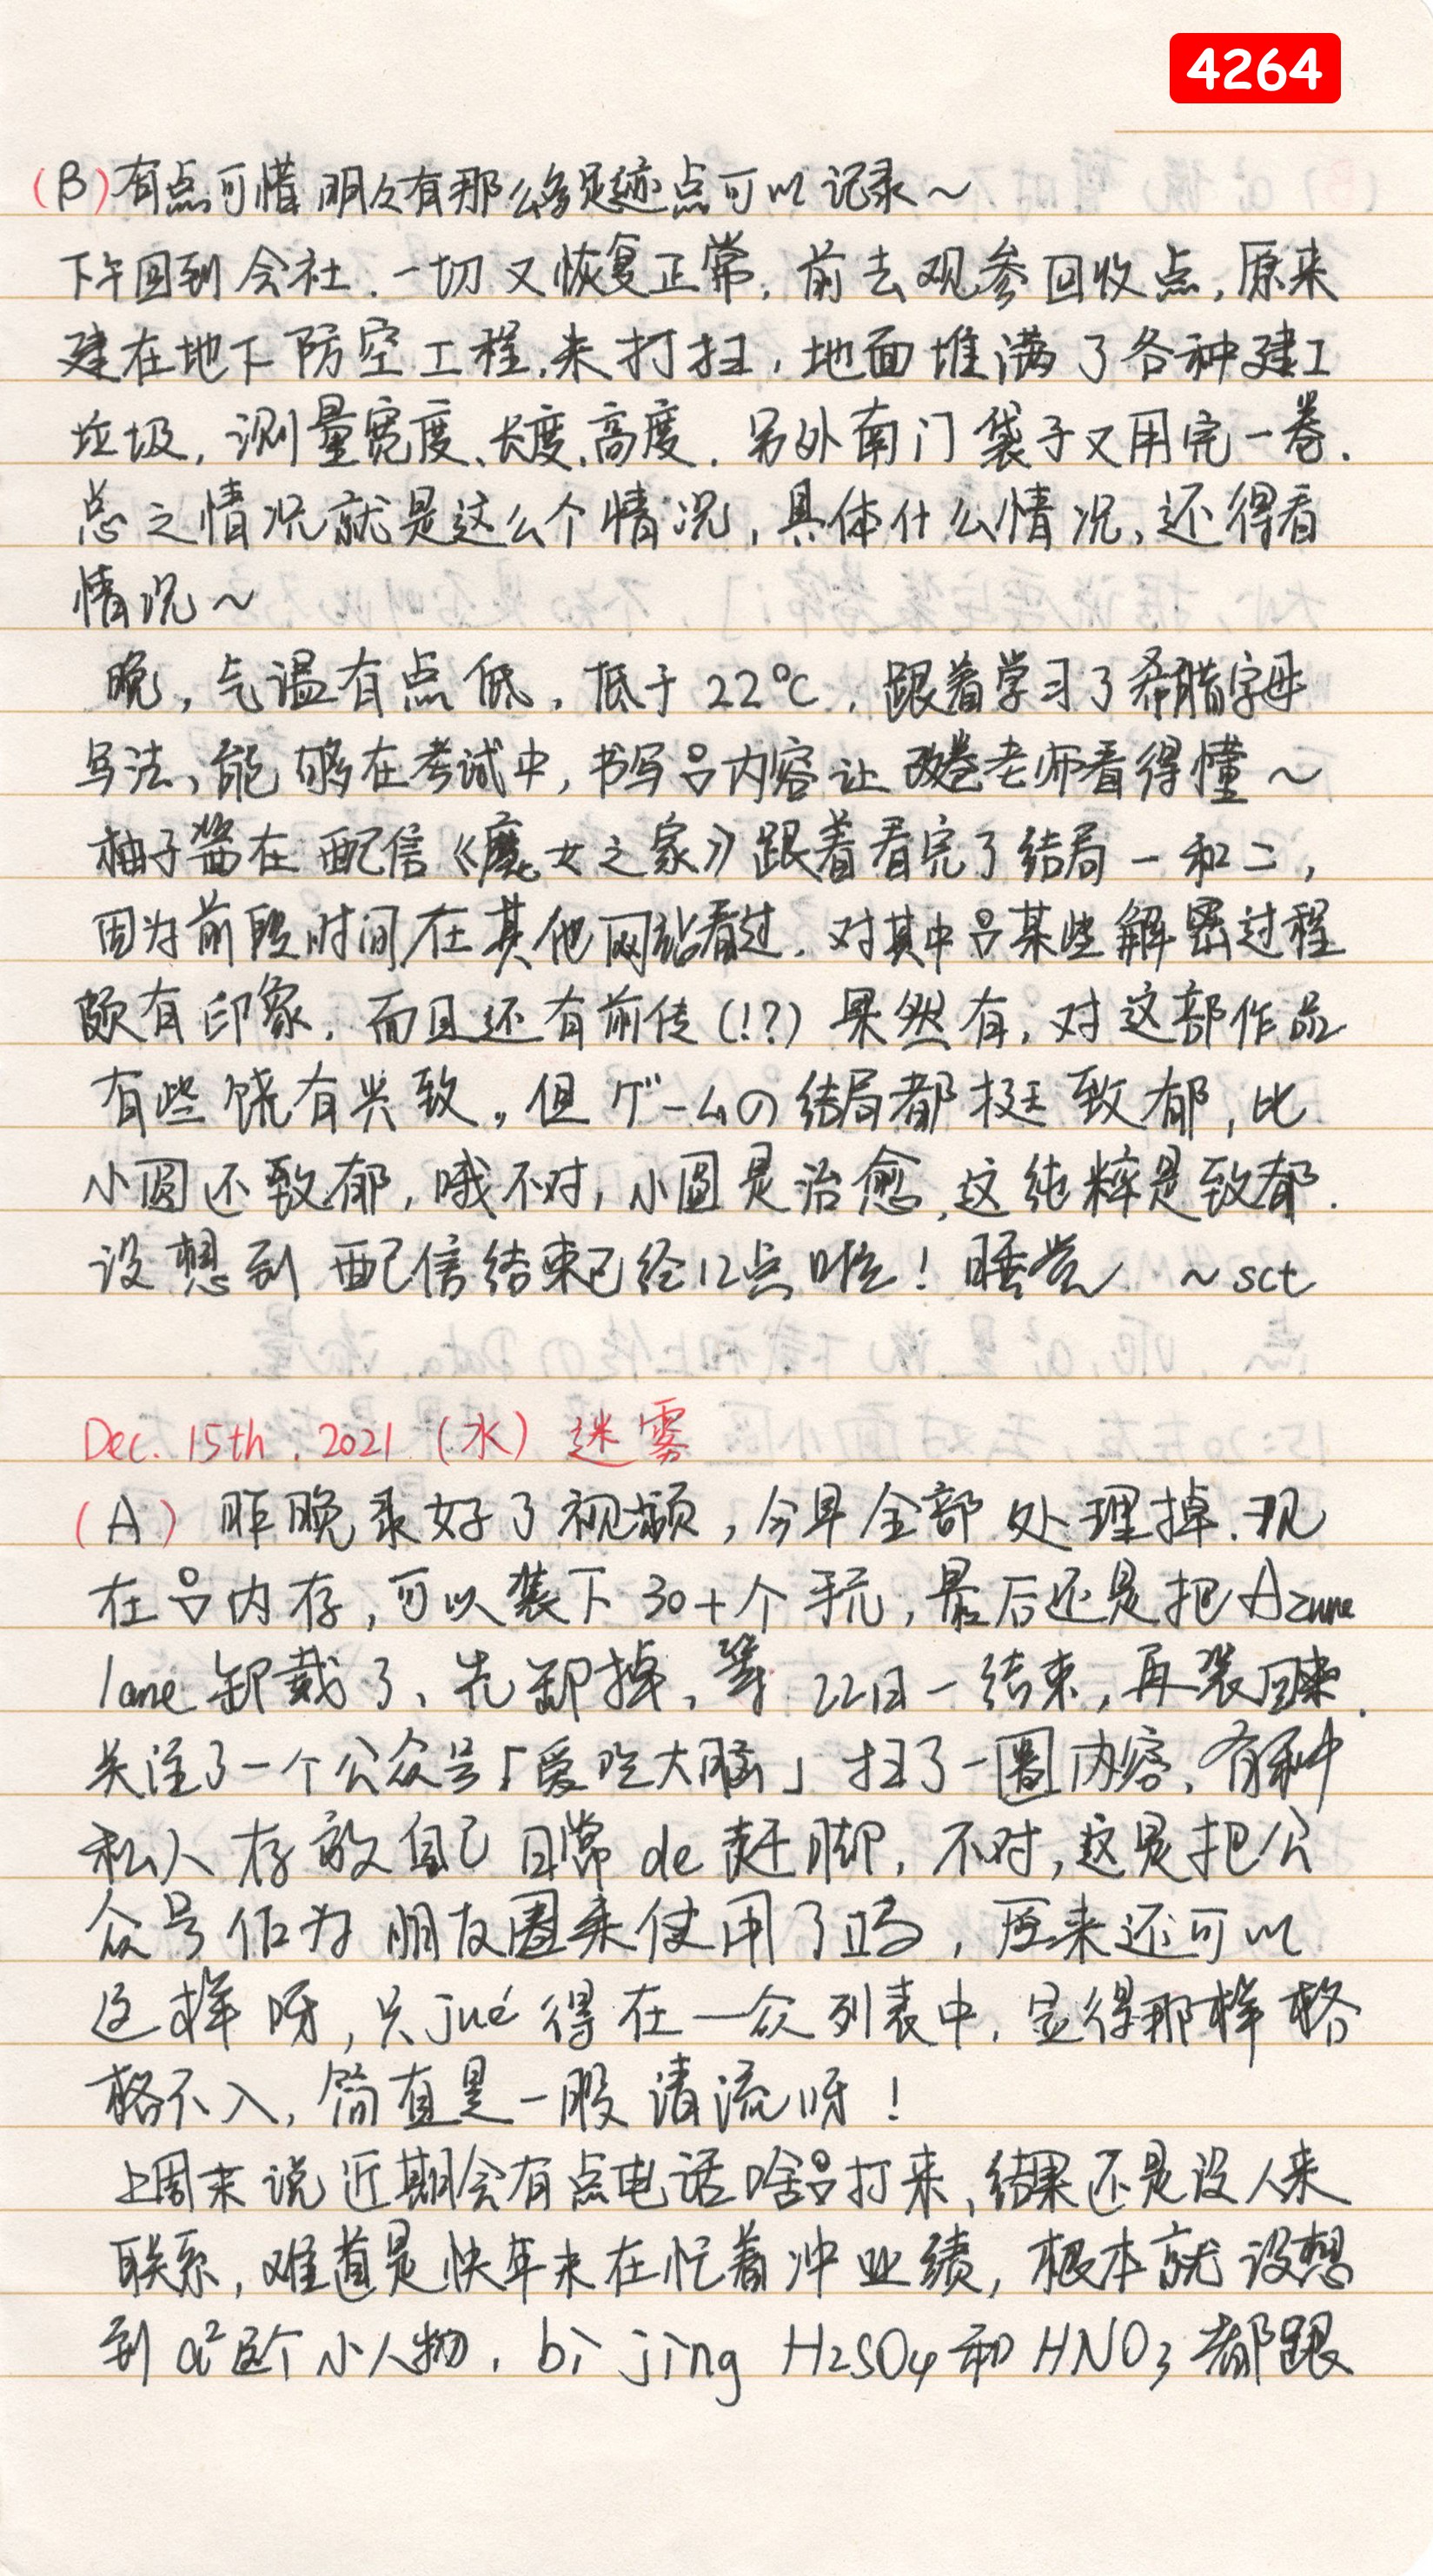 4264
(B)有点可惜 明々有那么多足迹点可以记录～
下午回到会社.一切又恢复正常,前去观参回收点,原来
建在地下防空工程,未打扫,地面堆满了各种建工
垃圾,测量宽度、长度、高度.另外南门袋子又用完一卷.
总之情况就是这么个情况,具体什么情况,还得看
情况～
晚,气温有点低,低于22℃,跟着学习了希腊字母
写法,能够在考试中,书写吕内容让改卷老师看得懂～
柚子酱在配信《魔女之家》跟着看完了结局一和二,
因为前段时间在其他网站看过.对其中吕某些解密过程
颇有印象.而且还有前传(!?)果然有,对这部作品
有些饶有兴致。但ゲームの结局都挺致郁,比
小圆还致郁,哦不对,小圆是治愈,这纯粹是致郁.
没想到配信结束已经12点啦!睡觉 ～sct
Dec.15th.2021(水)迷雾
(A) 昨晚录好了视频,今早全部处理掉.现
在吕内存,可以装下30+个手玩,最后还是把Azune
lane卸载了、先卸掉、等22日一结束,再装回来.
关注了一个公众号「爱吃大脑」扫了一圈内容,有种
私人存放自己日常de赶脚,不对,这是把公
众号作为朋友圈来使用了吗,原来还可以
这样呀,只jué得在一众列表中,显得那样格
格不入,简直是一股清流呀!
上周末说近期会有点电话啥吕打来,结果还是没人来
联系,难道是快年末在忙着冲业绩,根本就没想
到a²这个小人物.bì jìng H₂SO₄和HNO₃都跟